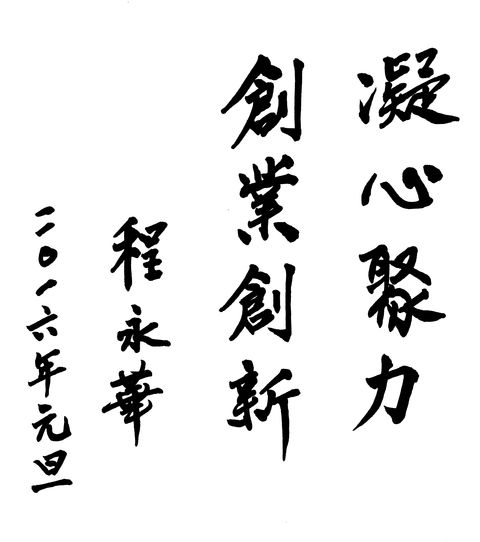 凝心聚力
創業創新
程永華
二〇一六年元旦